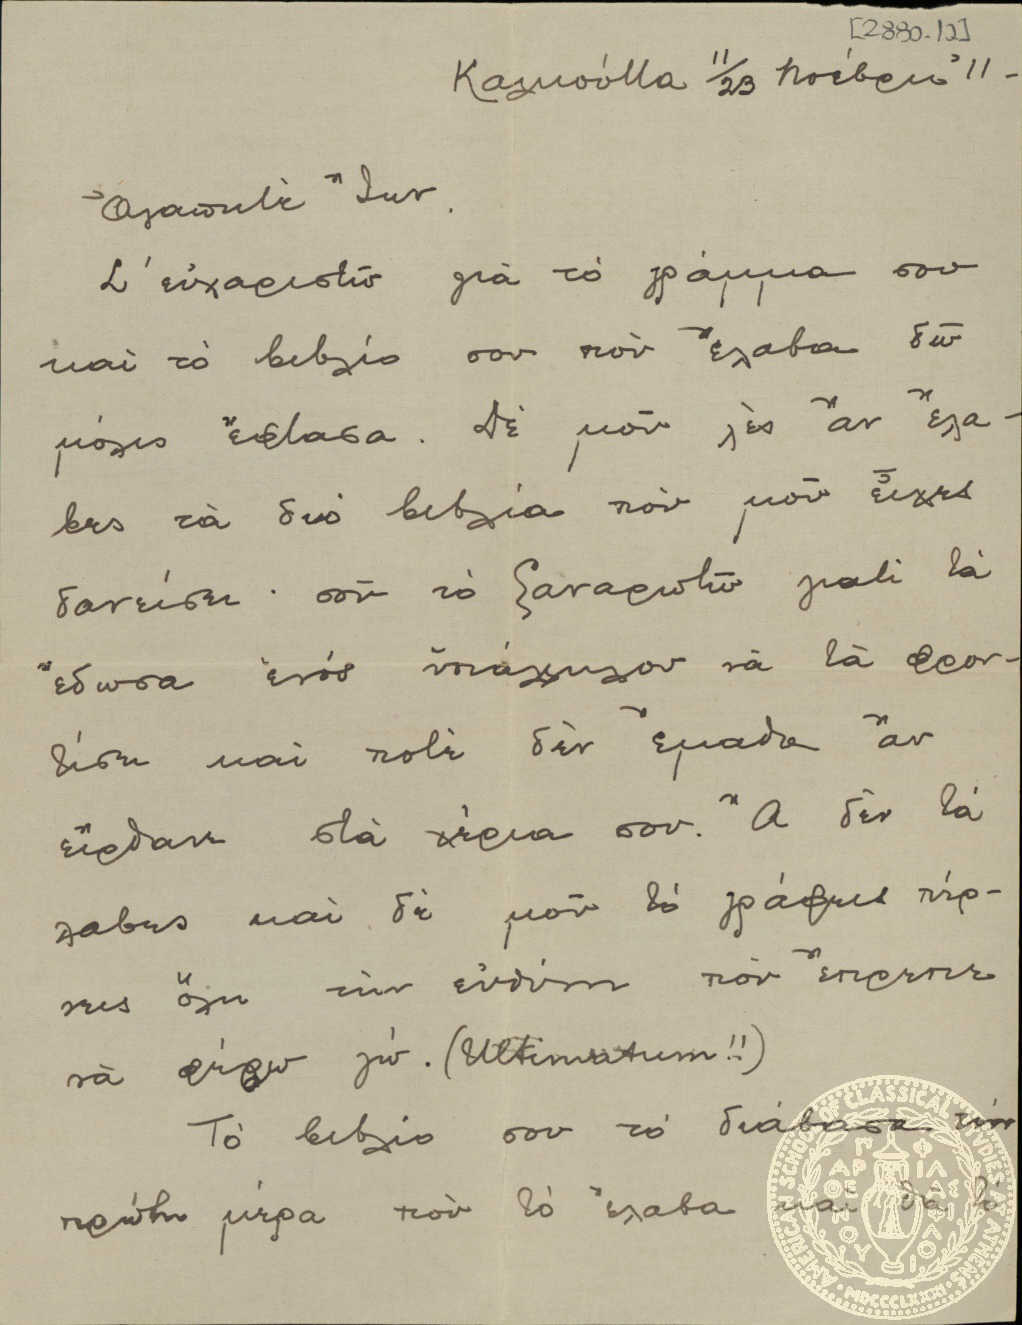 [2880-12]
Καλκούττα 11/23 Νοέβρη '11 -
Ἀγαπητὲ Ἴων.
Σ' εὐχαριστῶ γιὰ τὸ γράμμα σου
καὶ τὸ βιβλίο σου ποὺ ἔλαβα δῶ
μόλις ἔφτασα. Δὲ μοῦ λὲς ἂν ἔλα-
βες τὰ δυὸ βιβλία ποὺ μοῦ εἶχες
δανείσει· σοῦ τὸ ξαναρωτῶ γιατὶ τὰ
ἔδωσα ἑνὸς ὑπάλληλου νὰ τὰ φρον-
τίσει καὶ ποτὲ δὲν ἔμαθα ἂν
εἴρθανε στὰ χέρια σου. Ἂ δὲν τά
λαβες καὶ δὲ μοῦ τὸ γράφεις πέρ-
νεις ὅλη τὴν εὐθύνη ποὺ ἔπρεπε
νὰ φέρω γώ. (Ultimatum!!)
Τὸ βιβλίο σου τὸ διάβασα τὴν
πρώτη μέρα ποὺ τὸ ἔλαβα καὶ θὰ τὸ
AMERICAN SCHOOL OF CLASSICAL STUDIES AT ATHENS
MDCCCLXXXI
ΠΑΡΘΕΝΟΥ ΦΙΛΑΣ ΦΙΛΟΙ